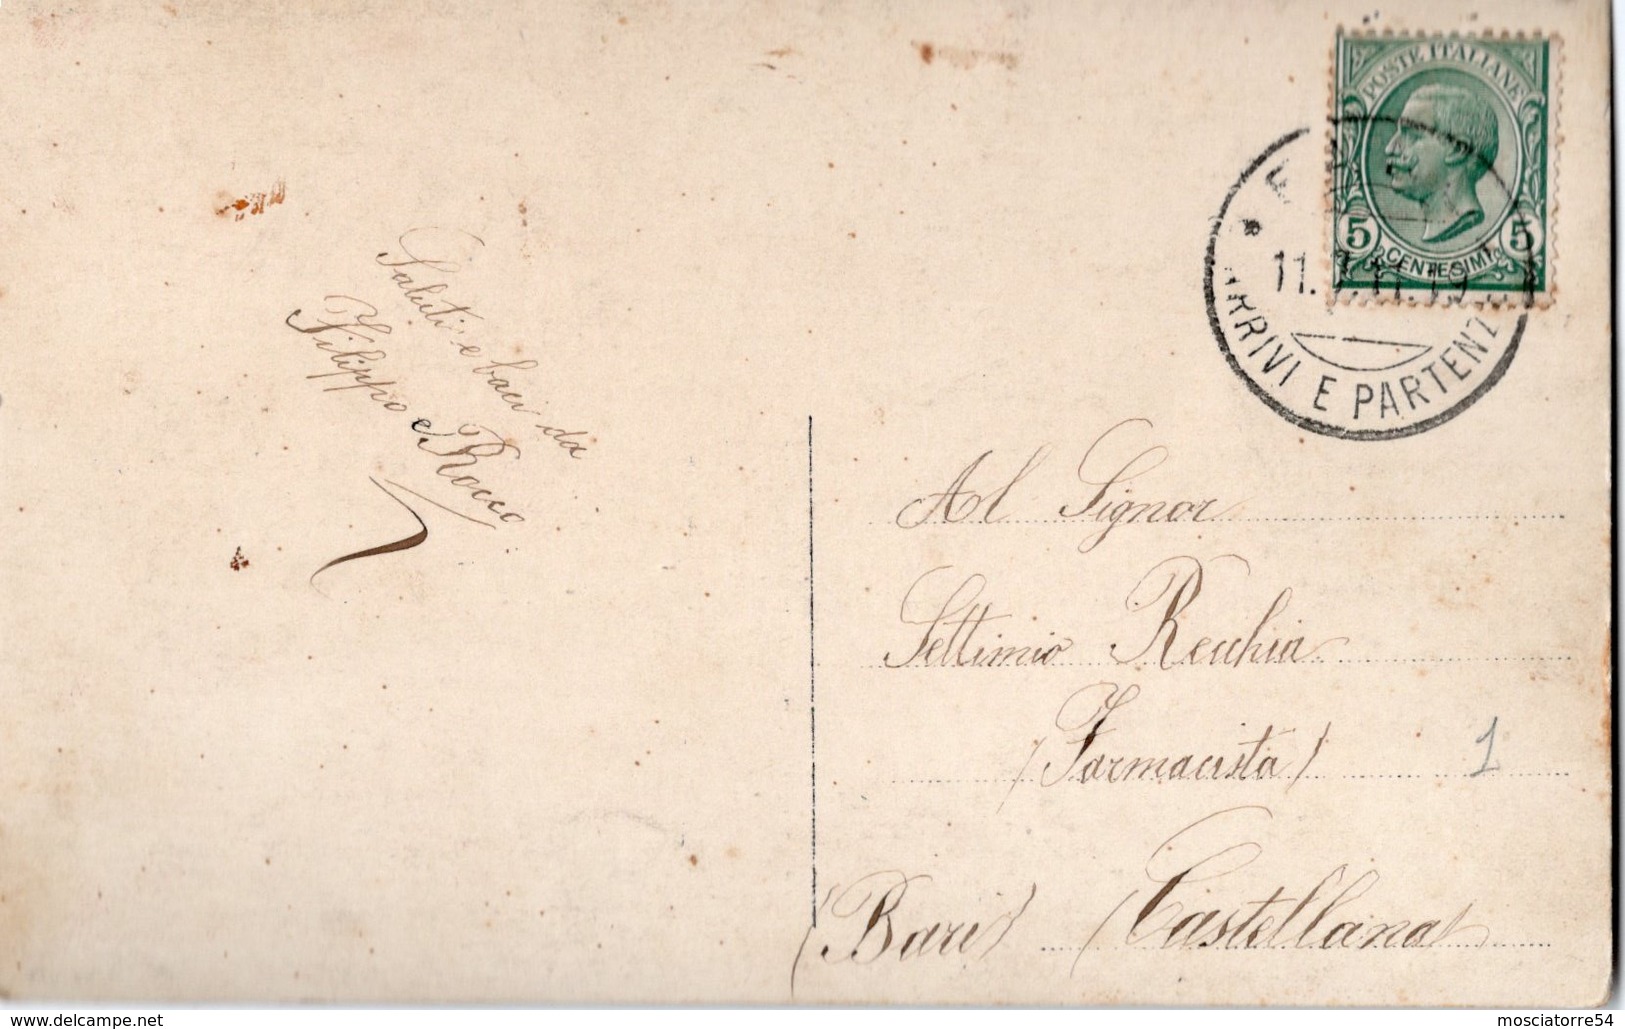 POSTE ITALIANE
5 CENTESIMI 5
11. 11. 19
ARRIVI E PARTENZ
Saluti e baci da
Filippo e Rocco
Al Signor
Settimio Recchia
(Farmacista)
1
(Bari) (Castellana)
www.delcampe.net
mosciatorre54